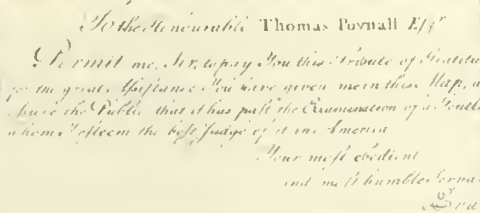 To the Honourable Thomas Pownall Esqr
Permit me, Sir, to pay You this Tribute of Gratitu
for the great Assistance You have given me in this Map, a
ssure the Public, that it has past the Examination of a Gentle
whom I esteem the best Judge of it in America
Your most obedient
and most humble Serva